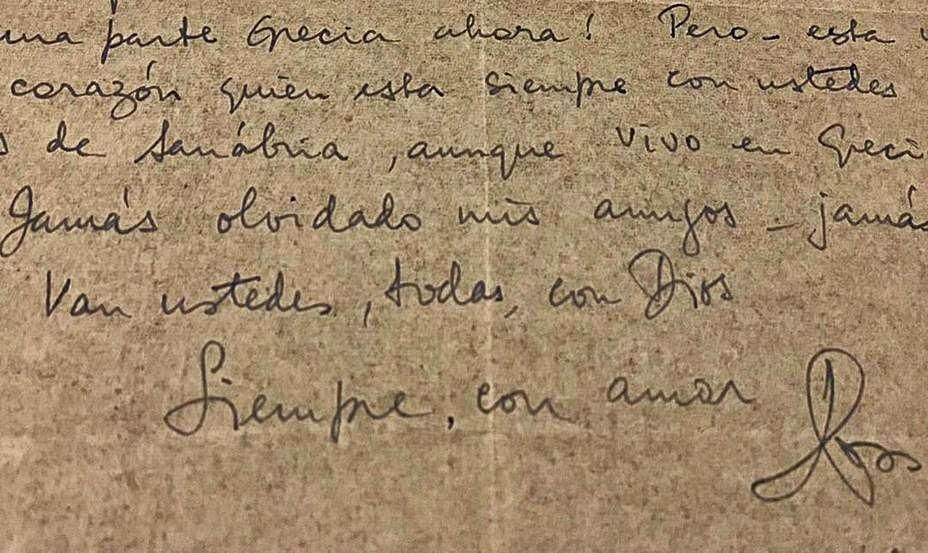 una parte Grecia ahora! Pero - esta
corazón quien esta siempre con ustedes
s de Sanábria, aunque vivo en Greci
Jamás olvidado mis amigos - jamás
Van ustedes, todas, con Dios
Siempre, con amor